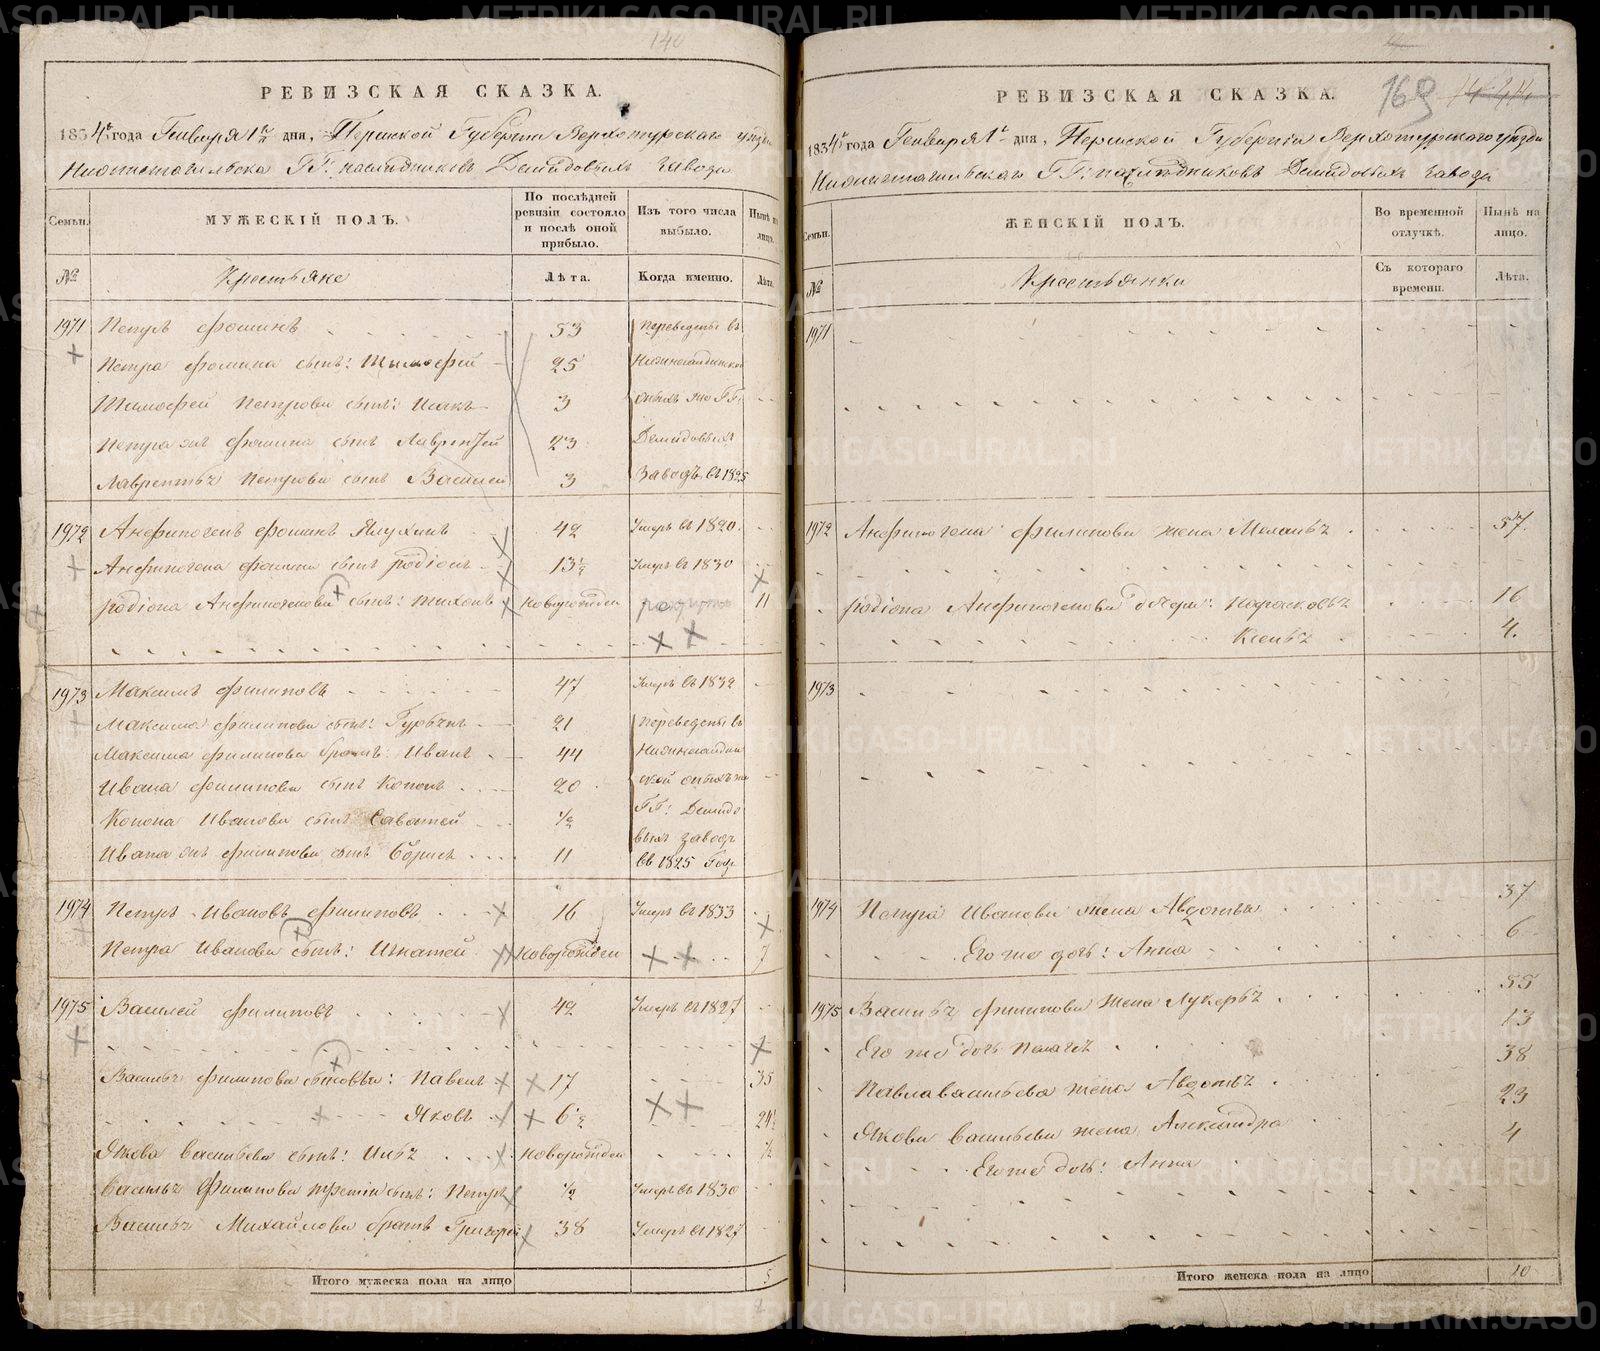 140
РЕВИЗСКАЯ СКАЗКА.
1834го года Генваря 1го дня, Пермской Губернии Верхотурскаго уезда
Нижнетагильска ГГ: наследниковъ Демидовыхъ завода
Семьи.
МУЖЕСКІЙ ПОЛЪ.
По послѣдней ревизіи состояло и послѣ оной прибыло.
Изъ того числа выбыло.
Нынѣ на лицо.
№
Крестьяне
Лѣта.
Когда именно.
Лѣта.
1971 Петръ Фоминъ 53 переведены въ
Петра Фомина сынъ: Тимофей 25
Тимофея Петрова сынъ: Исакъ 3 ГГ:
Петра же Фомина сынъ Лаврентей 23 Демидовыхъ
Лаврентья Петрова сынъ Василей 3 Заводъ въ 1825
1972 Анфиногенъ Фоминъ 42 Умеръ въ 1820
Анфиногена Фомина сынъ Родіонъ 13½ Умеръ въ 1830
Родіона Анфиногенова сынъ: Тихонъ новорожден 11
1973 Максимъ Филиповъ 47 Умеръ въ 1832
Максима Филипова сынъ: Гурьянъ 21 переведены въ
Максима Филипова братъ: Иванъ 44
Ивана Филипова сынъ Кононъ 20
Конона Иванова сынъ Саватей ½ ГГ: Демидо
Ивана же Филипова сынъ Борисъ 11 выхъ заводъ
въ 1825 Году
1974 Петръ Ивановъ Филиповъ 16 Умеръ въ 1833
Петра Иванова сынъ: Игнатей новорожден 7
1975 Василей Филиповъ 42 Умеръ въ 1827
Василья Филипова сыновья: Павелъ 17 35
Яковъ 6½ 24½
Якова Васильева сынъ: новорожден ½
Василья Филипова третій сынъ: Петръ ½ Умеръ въ 1830
Василья Михайлова братъ Григорей 38 Умеръ въ 1827
Итого мужеска пола на лицо 5
169
РЕВИЗСКАЯ СКАЗКА.
1834го года Генваря 1го дня, Пермской Губерніи Верхотурскаго уезда
Нижнетагильскаго ГГ: наследниковъ Демидовыхъ завода
Семьи.
ЖЕНСКІЙ ПОЛЪ.
Во временной отлучкѣ.
Нынѣ на лицо.
№
Крестьянки
Съ котораго времени.
Лѣта.
1971
1972 Анфиногена Филипова жена Меланья 57.
Родіона Анфиногенова дочери: Парасковья 16
4.
1973
1974 Петра Иванова жена Авдотья 37
Его же дочь: Анна 6
1975 Василья Филипова жена Лукерья 55
Его же дочь Пелагея 13
Павла Васильева жена Авдотья 38
Якова Васильева жена Александра 23
Его же дочь: Анна 4
Итого женска пола на лицо 10
METRIKI.GASO-URAL.RU